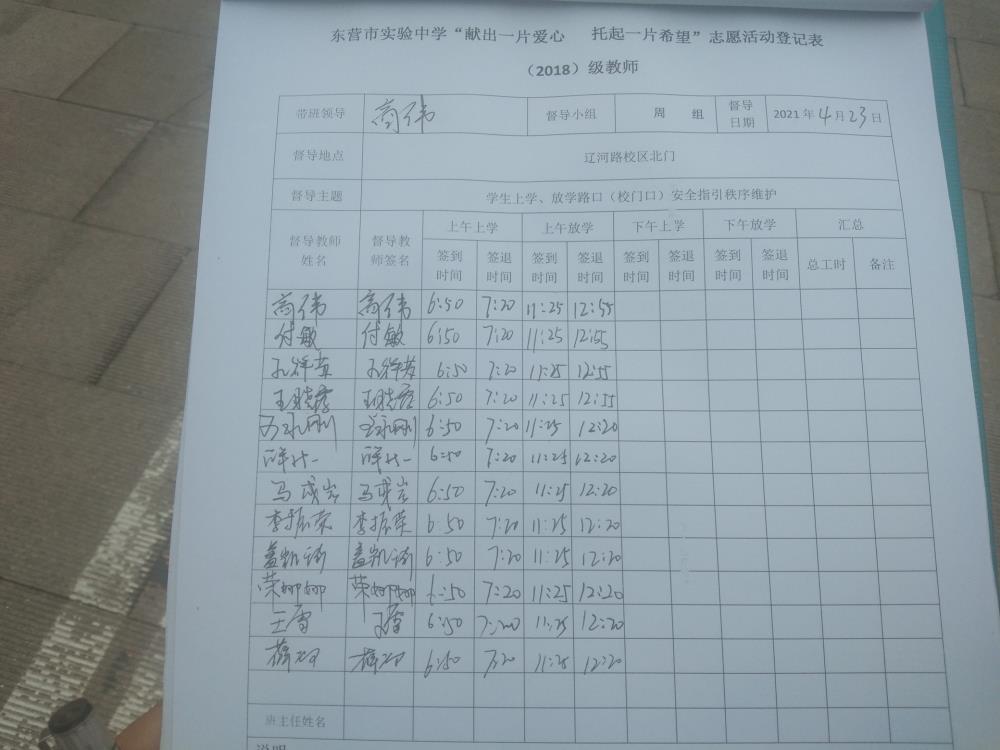 东营市实验中学“献出一片爱心 托起一片希望”志愿活动登记表
（2018）级教师
带班领导 高伟 督导小组 周 组 督导日期 2021年4月23日
督导地点 辽河路校区北门
督导主题 学生上学、放学路口（校门口）安全指引秩序维护
督导教师姓名 督导教师签名 上午上学 上午放学 下午上学 下午放学 汇总
签到时间 签退时间 签到时间 签退时间 签到时间 签退时间 签到时间 签退时间 总工时 备注
高伟 高伟 6:50 7:20 11:25 12:55
付敏 付敏 6:50 7:20 11:25 12:55
孔祥英 孔祥英 6:50 7:20 11:25 12:55
王晓霞 王晓霞 6:50 7:20 11:25 12:55
永刚 永刚 6:50 7:20 11:25 12:20
6:50 7:20 11:25 12:20
马成岩 马成岩 6:50 7:20 11:25 12:20
李振荣 李振荣 6:50 7:20 11:25 12:20
盖凯 盖凯 6:50 7:20 11:25 12:20
荣娜娜 荣娜娜 6:50 7:20 11:25 12:20
王雪 王雪 6:50 7:20 11:25 12:20
薛 薛 6:50 7:20 11:25 12:20
班主任姓名